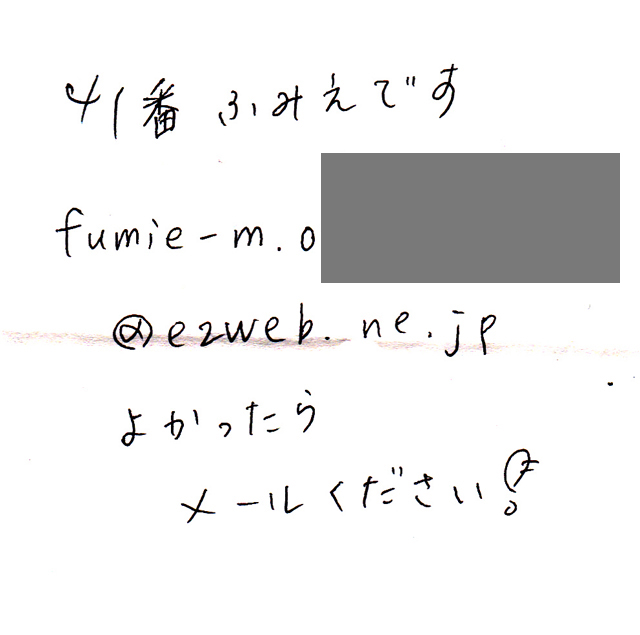 41番 ふみえです
fumie-m.o
@ezweb.ne.jp
よかったら
メールください!